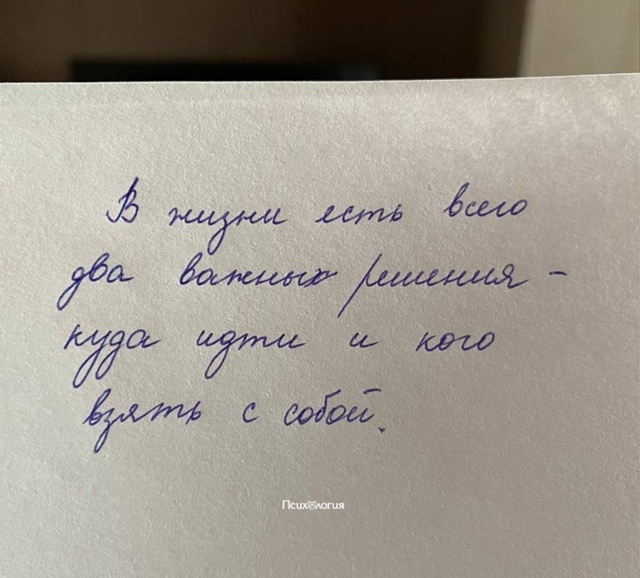 В жизни есть всего
два важных решения –
куда идти и кого
взять с собой.
Психология